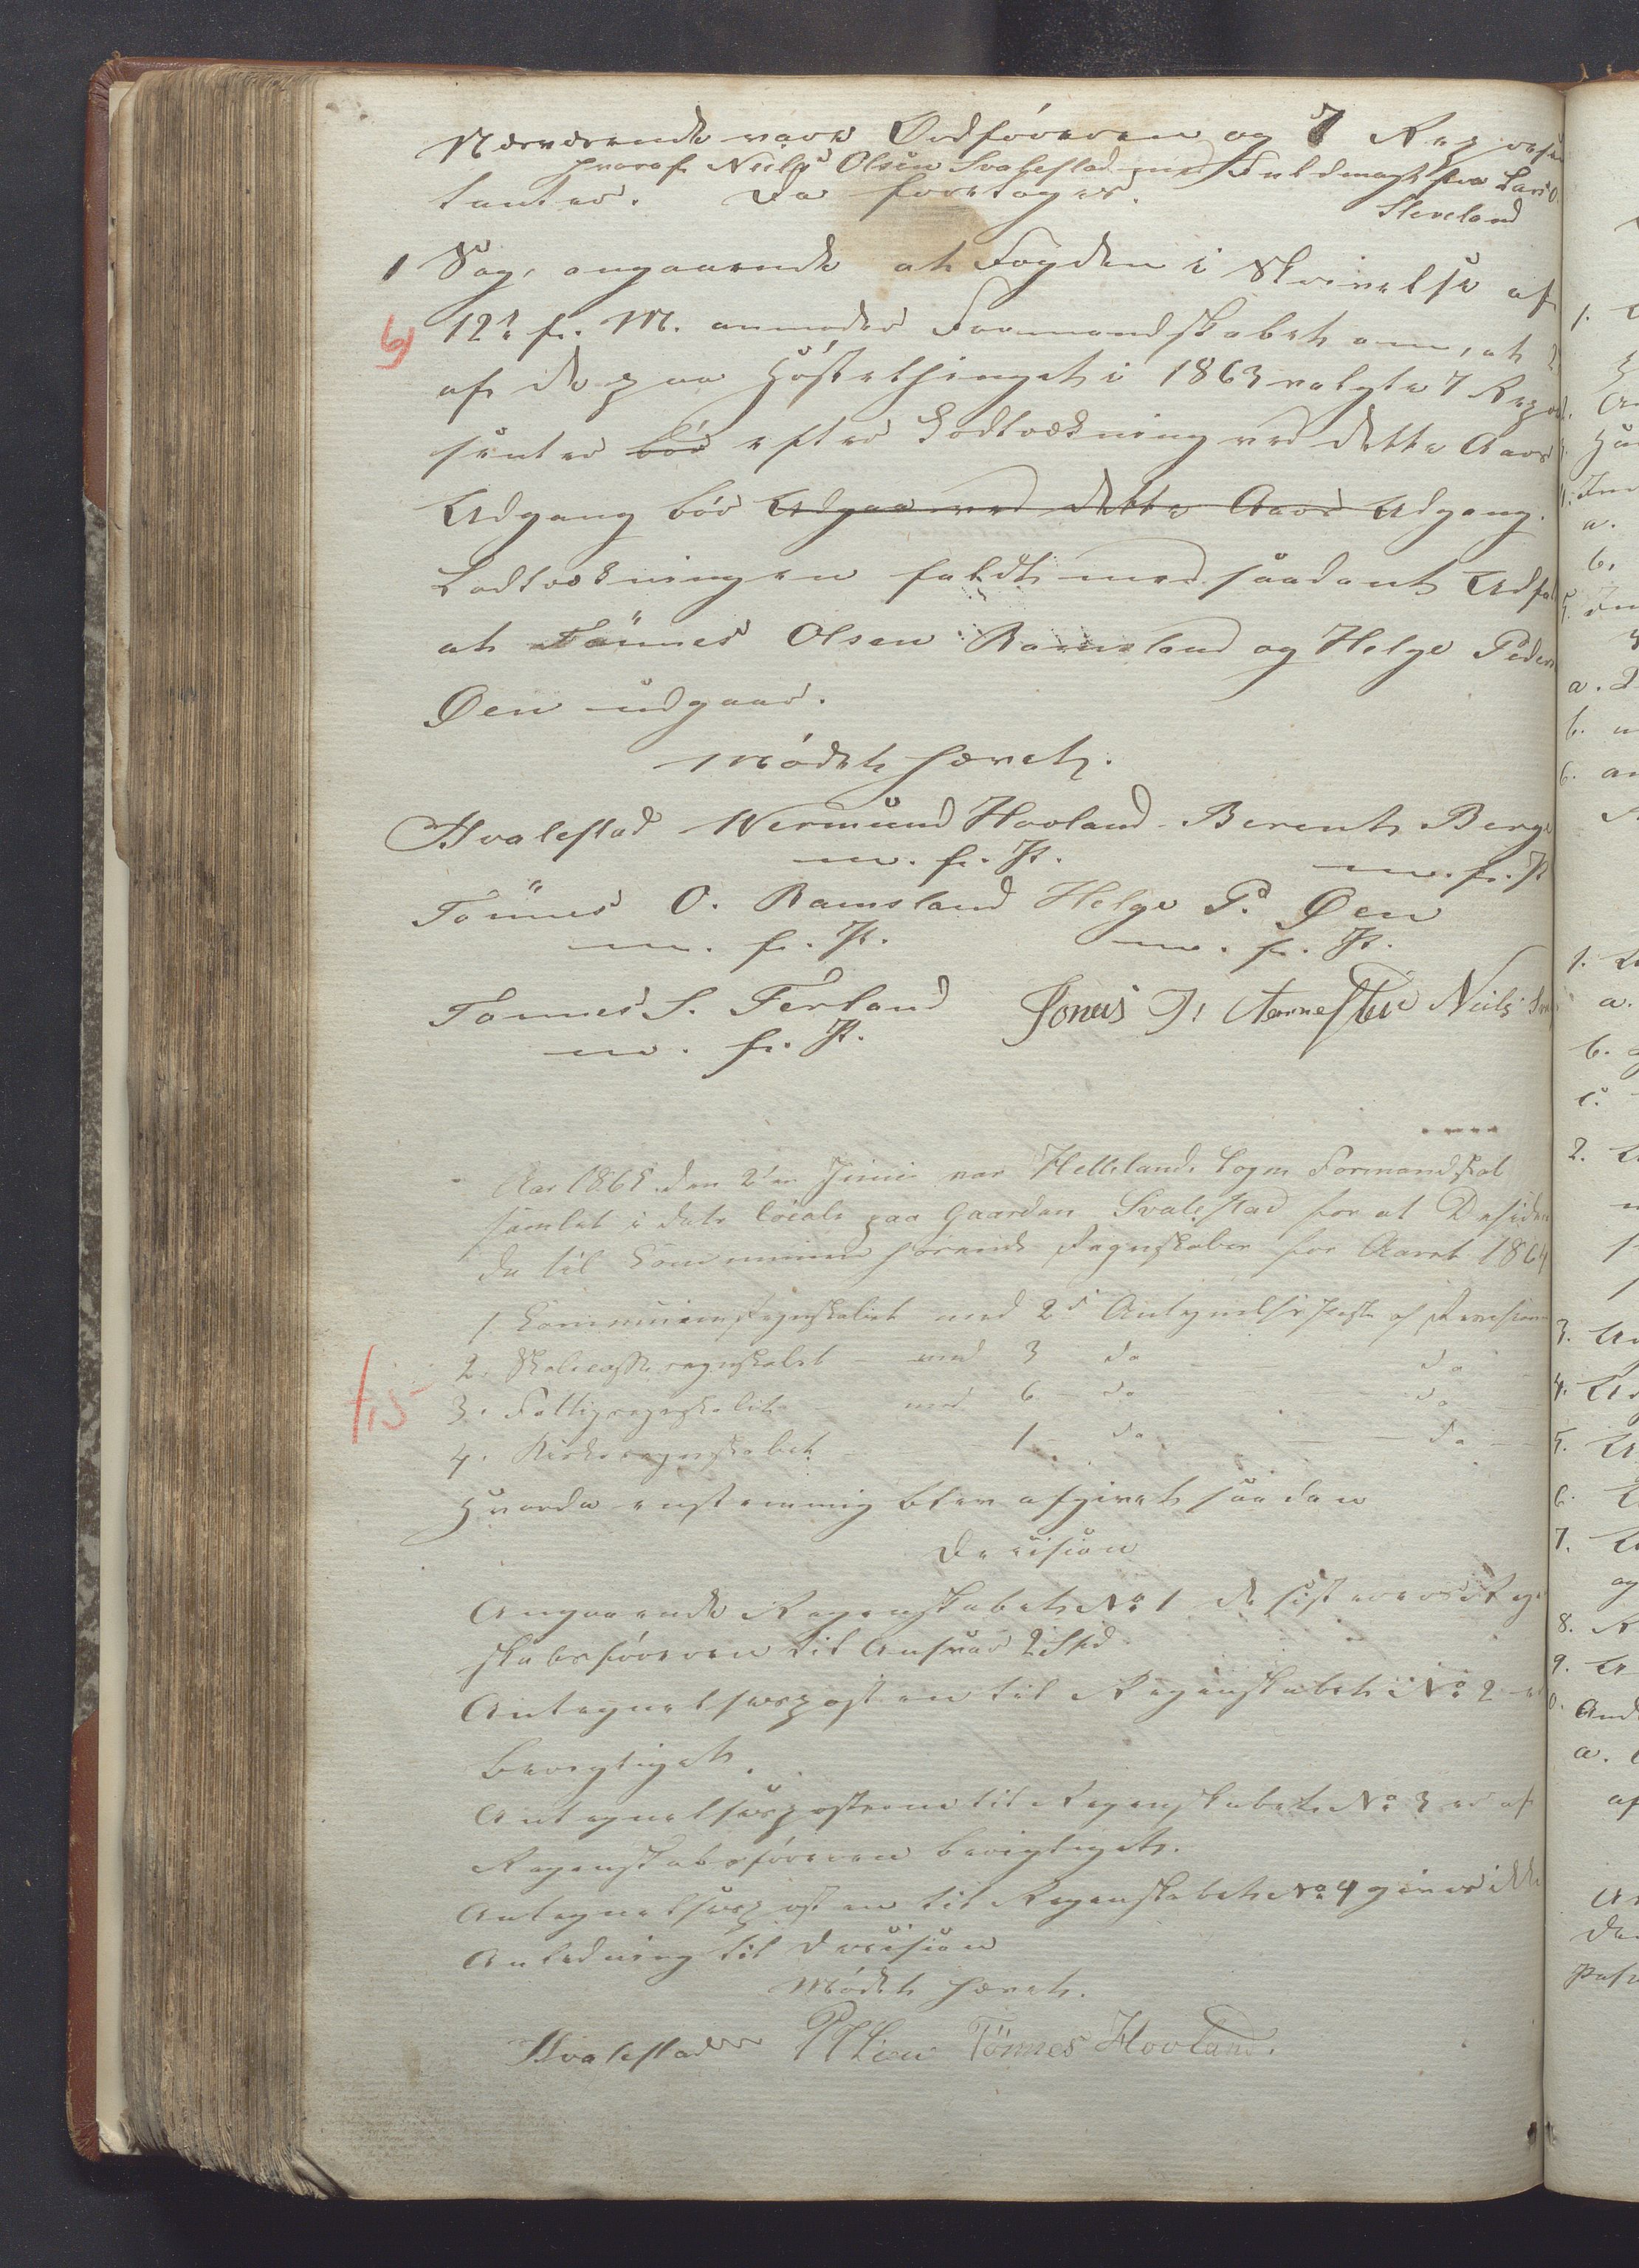 Nærværende vare Ordføreren og 7 Repræsen
hvoraf Neils Olsen Svalestad med Fuldmagt fra Lars O.
Sleveland
tanter. Da foretoges.
1 Sag, angaaende at Fogden i Skrivelse af
12te f. M. anmoder Formandskabet om, at 2
af de paa Høstethinget i 1863 valgte 7 Repræ
senter bør efter Lodtrækning ved dette Aars
Udgang bør Udgaa ved dette Aars Udgang.
Lodtrækningen faldt med saadant Udfal
at Tønnes Olsen Ramsland og Helge Peders
Øen udgaar.
Mødet hævet.
Hvalestad Wermund Hovland Berent Berge
m. f. P. m. f. P.
Tønnes O. Ramsland Helge P. Øen
m. f. P. m. f. P.
Tønnes S. Ferland Jonas J. Neils
m. f. P.
Aar 1865 den 2den Juni var Hellelands Sogns Formandskab
samlet i dets locale paa Gaarden Svalestad for at Deside
de til Communen hørende Regnskaber for Aaret 1864
1. Communeregnskabet med 2de Antegnelsesposte af Revisionen
2. Skolecasseregnskabet – med 3 do do
3. Fattigregnskabet – med 6 – do do
4. Kirkeregnskabet 1. do – do –
Hvorda enstemmig blev afgivet saadan
Decision
Angaaende Regnskabet No 1 desisteres Regn
skabsføreren til Ansvar 2 Spd
Antegnelsesposten til Regenskabet No 2 er
berigtiget.
Antegnelsesposterne til Regenskabet No 3 er af
Regenskabsføreren berigtiget.
Antegnelsesposten til Regenskabet No 4 giver ikke
Anledning til Decision
Mødet hævet.
Hvalestad Tönnes Hovland.